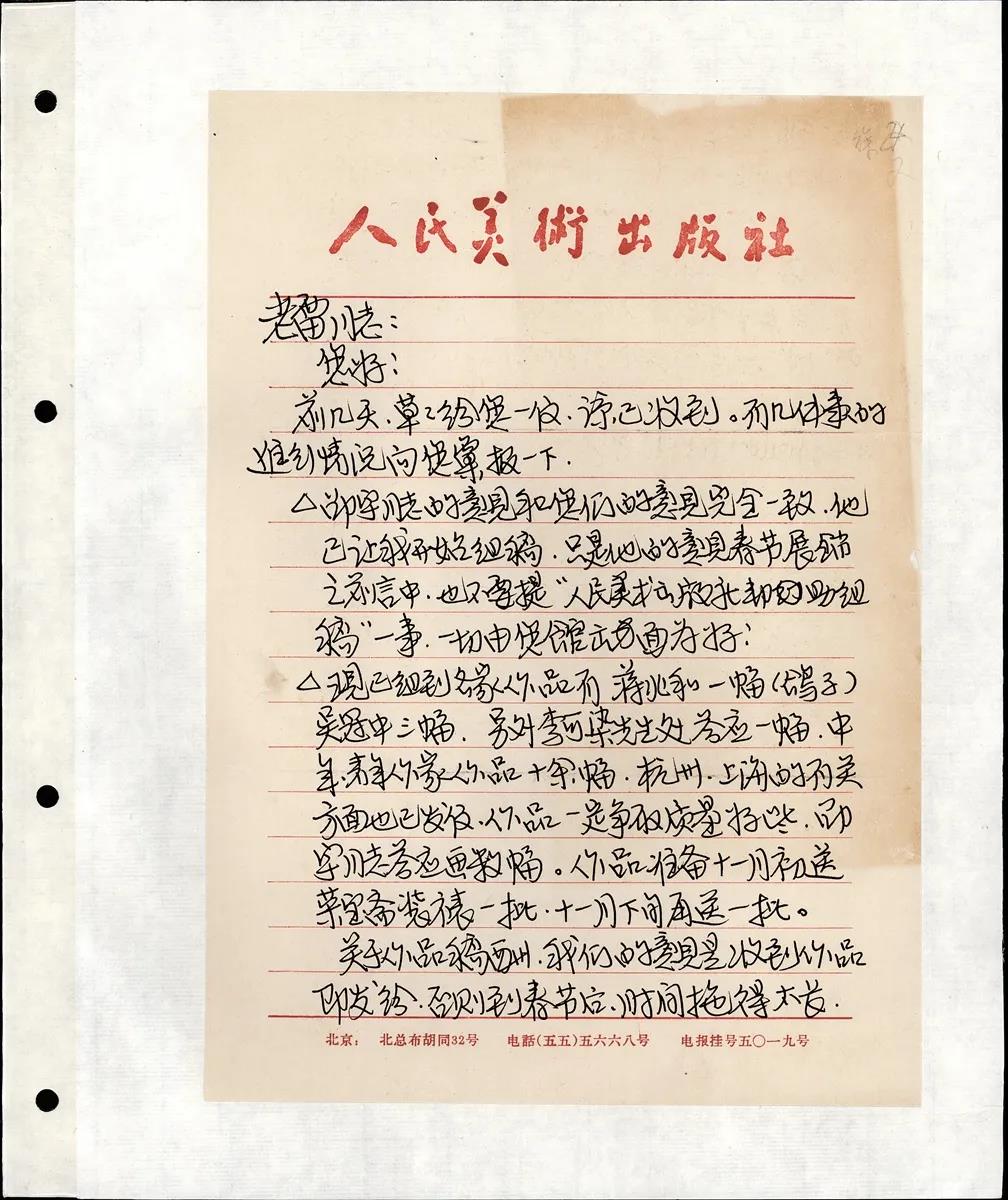 人民美術出版社
老雷同志：
您好！
前几天、草草给您一信、谅已收到。有几件事的
进行情况向您彙报一下.
△邵宇同志的意见和您们的意见完全一致.他
已让我开始组稿.只是他的意见春节展销
之前言中.也不要提"人民美术出版社帮助组
稿"一事.一切由您馆出面为好！
△现已组到名家作品有 蒋兆和一幅(鸽子)
吴冠中三幅. 另外李可染先生处答应一幅.中
年、青年作家作品十余幅.杭州.上海的有关
方面也已发信.作品一定争取质量好些.邵
宇同志答应画数幅。作品准备十一月初送
荣宝斋装裱一批.十一月下旬再送一批。
关于作品稿酬.我们的意见是收到作品
即发给.否则到春节后、时间拖得太长.
北京： 北总布胡同32号 电話(五五)五六六八号 电报挂号五〇一九号